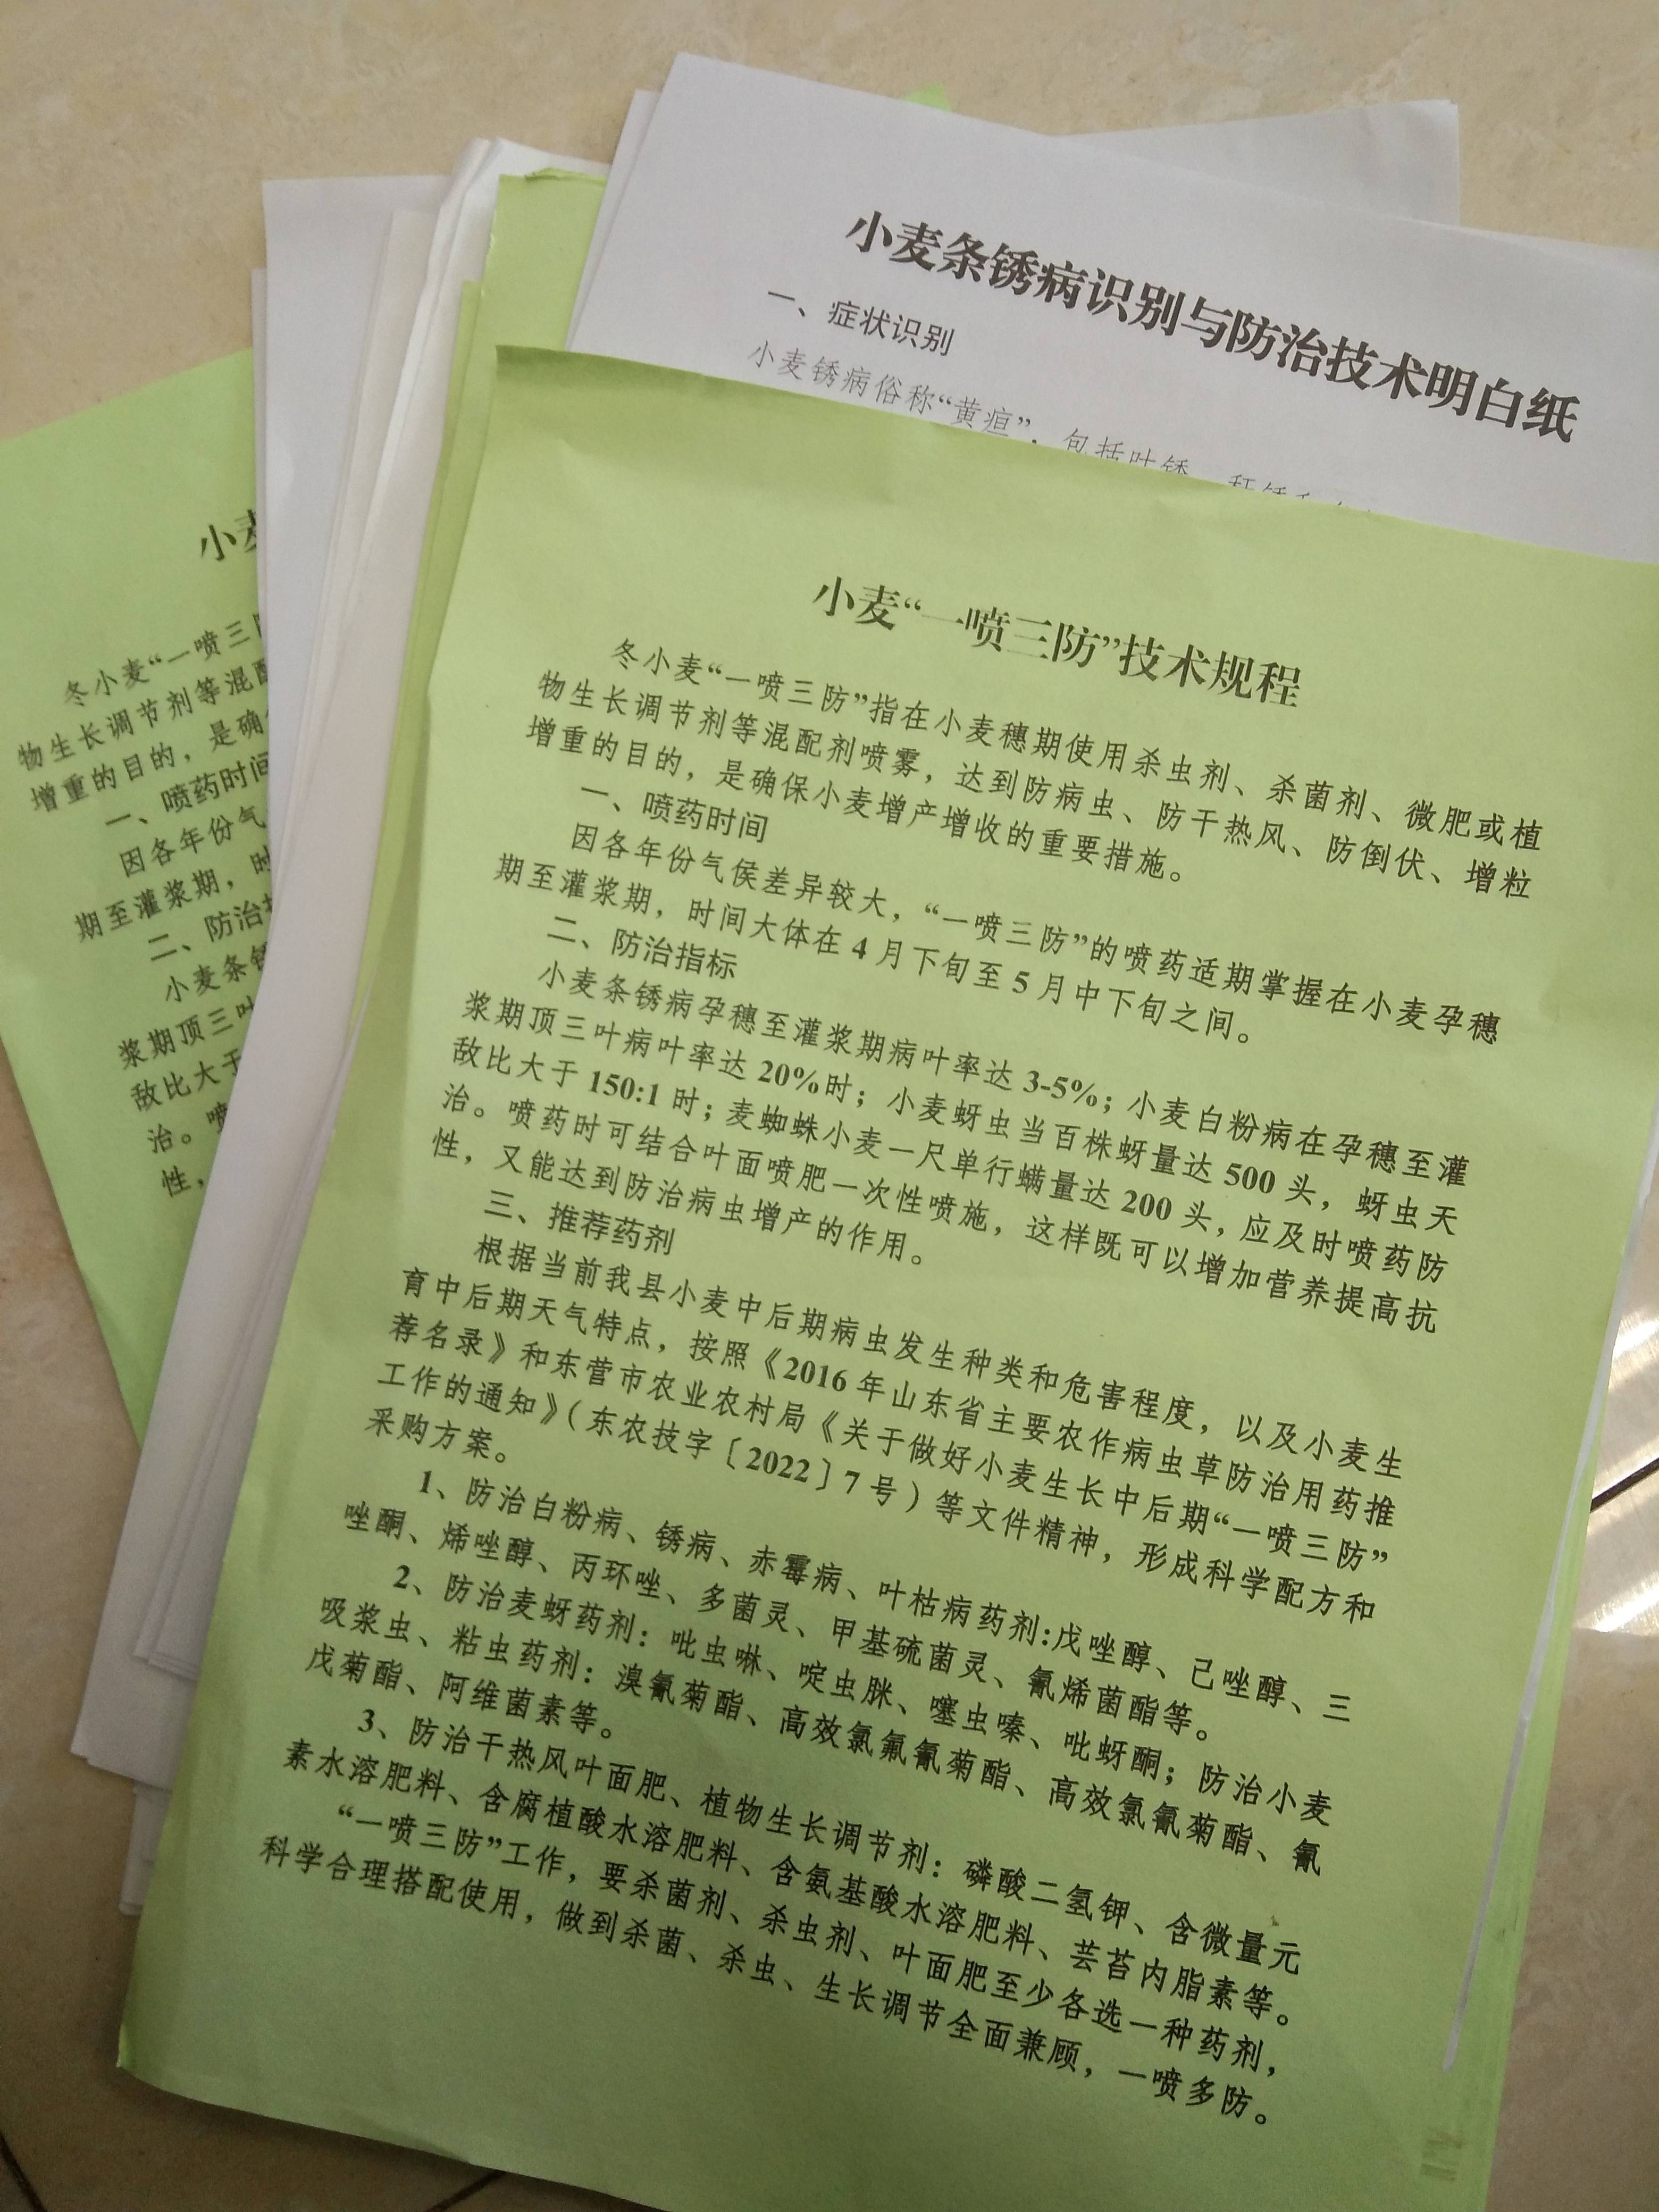 小麦条锈病识别与防治技术明白纸
一、症状识别
小麦锈病俗称“黄疸”,包括叶锈、秆锈和
小麦“一喷三防”技术规程
冬小麦“一喷三防”指在小麦穗期使用杀虫剂、杀菌剂、微肥或植
物生长调节剂等混配剂喷雾，达到防病虫、防干热风、防倒伏、增粒
增重的目的，是确保小麦增产增收的重要措施。
一、喷药时间
因各年份气侯差异较大，“一喷三防”的喷药适期掌握在小麦孕穗
期至灌浆期，时间大体在4月下旬至5月中下旬之间。
二、防治指标
小麦条锈病孕穗至灌浆期病叶率达3-5%；小麦白粉病在孕穗至灌
浆期顶三叶病叶率达20%时；小麦蚜虫当百株蚜量达500头，蚜虫天
敌比大于150:1时；麦蜘蛛小麦一尺单行螨量达200头，应及时喷药防
治。喷药时可结合叶面喷肥一次性喷施，这样既可以增加营养提高抗
性，又能达到防治病虫增产的作用。
三、推荐药剂
根据当前我县小麦中后期病虫发生种类和危害程度，以及小麦生
育中后期天气特点，按照《2016年山东省主要农作病虫草防治用药推
荐名录》和东营市农业农村局《关于做好小麦生长中后期“一喷三防”
工作的通知》（东农技字〔2022〕7号）等文件精神，形成科学配方和
采购方案。
1、防治白粉病、锈病、赤霉病、叶枯病药剂:戊唑醇、己唑醇、三
唑酮、烯唑醇、丙环唑、多菌灵、甲基硫菌灵、氰烯菌酯等。
2、防治麦蚜药剂：吡虫啉、啶虫脒、噻虫嗪、吡蚜酮；防治小麦
吸浆虫、粘虫药剂：溴氰菊酯、高效氯氟氰菊酯、高效氯氰菊酯、氰
戊菊酯、阿维菌素等。
3、防治干热风叶面肥、植物生长调节剂：磷酸二氢钾、含微量元
素水溶肥料、含腐植酸水溶肥料、含氨基酸水溶肥料、芸苔内脂素等。
“一喷三防”工作，要杀菌剂、杀虫剂、叶面肥至少各选一种药剂，
科学合理搭配使用，做到杀菌、杀虫、生长调节全面兼顾，一喷多防。
小麦
冬小麦“一喷三防
物生长调节剂等混配
增重的目的，是确
一、喷药时间
因各年份气
期至灌浆期，时
二、防治
小麦条锈
浆期顶三叶
敌比大于
治。喷
性，